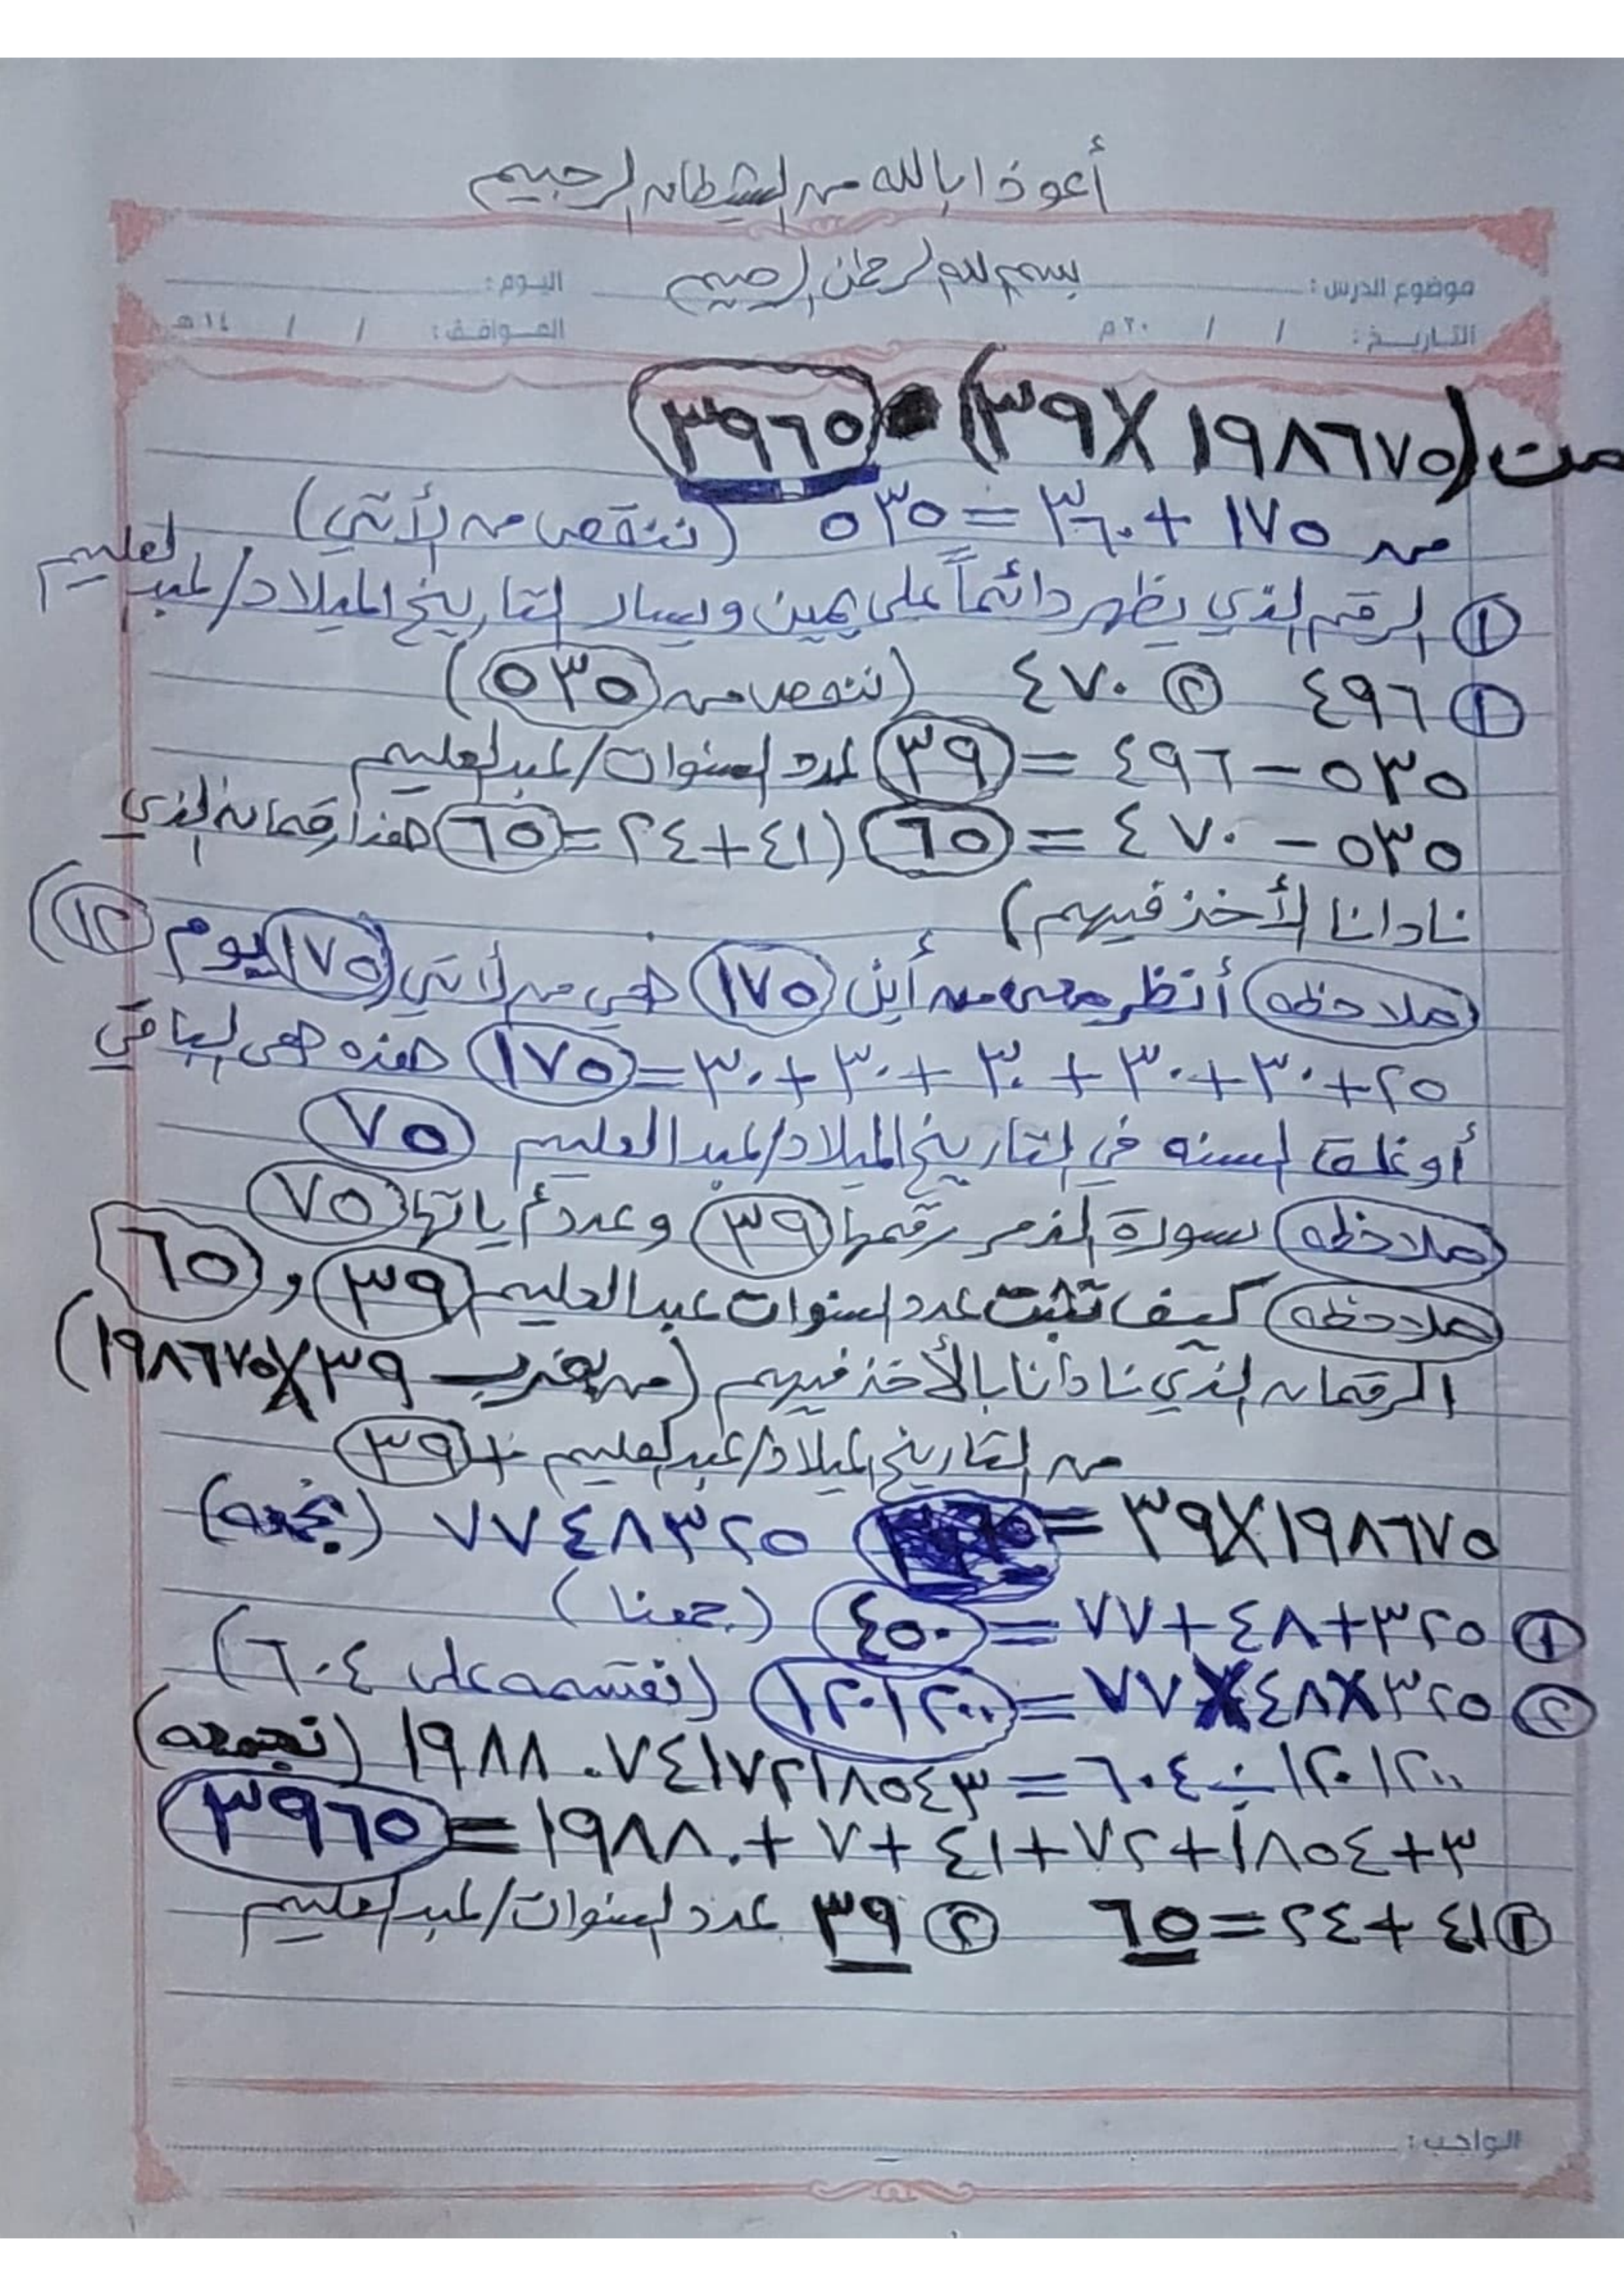 أعوذ ابالله من الشيطان الرجيم
بسم الله الرحمن الرحيم
موضوع الدرس : اليوم :
التاريخ : / / ٢٠م الموافق : / / ١٤هـ
من (١٩٨٦٧٥ X ٣٩) ٣٩٦٥
من ١٧٥ + ٣٦٠ = ٥٣٥ (ننقص من لأتي)
① الرقم الذي يظهر دائماً على يمين ويسار التاريخ الميلاد/عبدالعليم
① ٤٩٦ ② ٤٧٠ (ننقص من ٥٣٥)
٥٣٥ – ٤٩٦ = ٣٩ عدد السنوات/عبدالعليم
٥٣٥ – ٤٧٠ = ٦٥ (٤١+٢٤=٦٥ هذا رقمان الذي
نادانا لأخذ فيهم)
ملاحظه أنظر من أين ١٧٥ هي من لأتي (١٧٥ يوم ١٢)
٢٥+٣٠+٣٠+٣٠+٣٠+٣٠=١٧٥ هذه هي الباقي
أو غلق السنه في التاريخ الميلاد/عبدالعليم ٧٥
ملاحظه سورة الزمر رقمها ٣٩ وعدد أياتها ٧٥
ملاحظه كيف تثبت عدد السنوات عبدالعليم ٣٩ و ٦٥
الرقمان الذي نادانا بالأخذ فيهم (من بضرب ٣٩ X ١٩٨٦٧٥)
من التاريخ الميلاد/عبدالعليم + ٣٩
١٩٨٦٧٥ X ٣٩ = ٧٧٤٨٣٢٥ (نجمعه)
① ٣٢٥+٤٨+٧٧ = ٤٥٠ (جمعنا)
② ٣٢٥X٤٨X٧٧ = ١٢٠١٢٠٠ (نقسمه على ٦٠٤)
١٢٠١٢٠٠ ÷ ٦٠٤ = ١٩٨٨٠٧٤١٧٢١٨٥٤٣ (نجمعه)
٣+١٨٥٤+٧٢+٤١+٧+١٩٨٨٠ = ٣٩٦٥
① ٤١+٢٤=٦٥ ② ٣٩ عدد السنوات/عبدالعليم
الواجب :